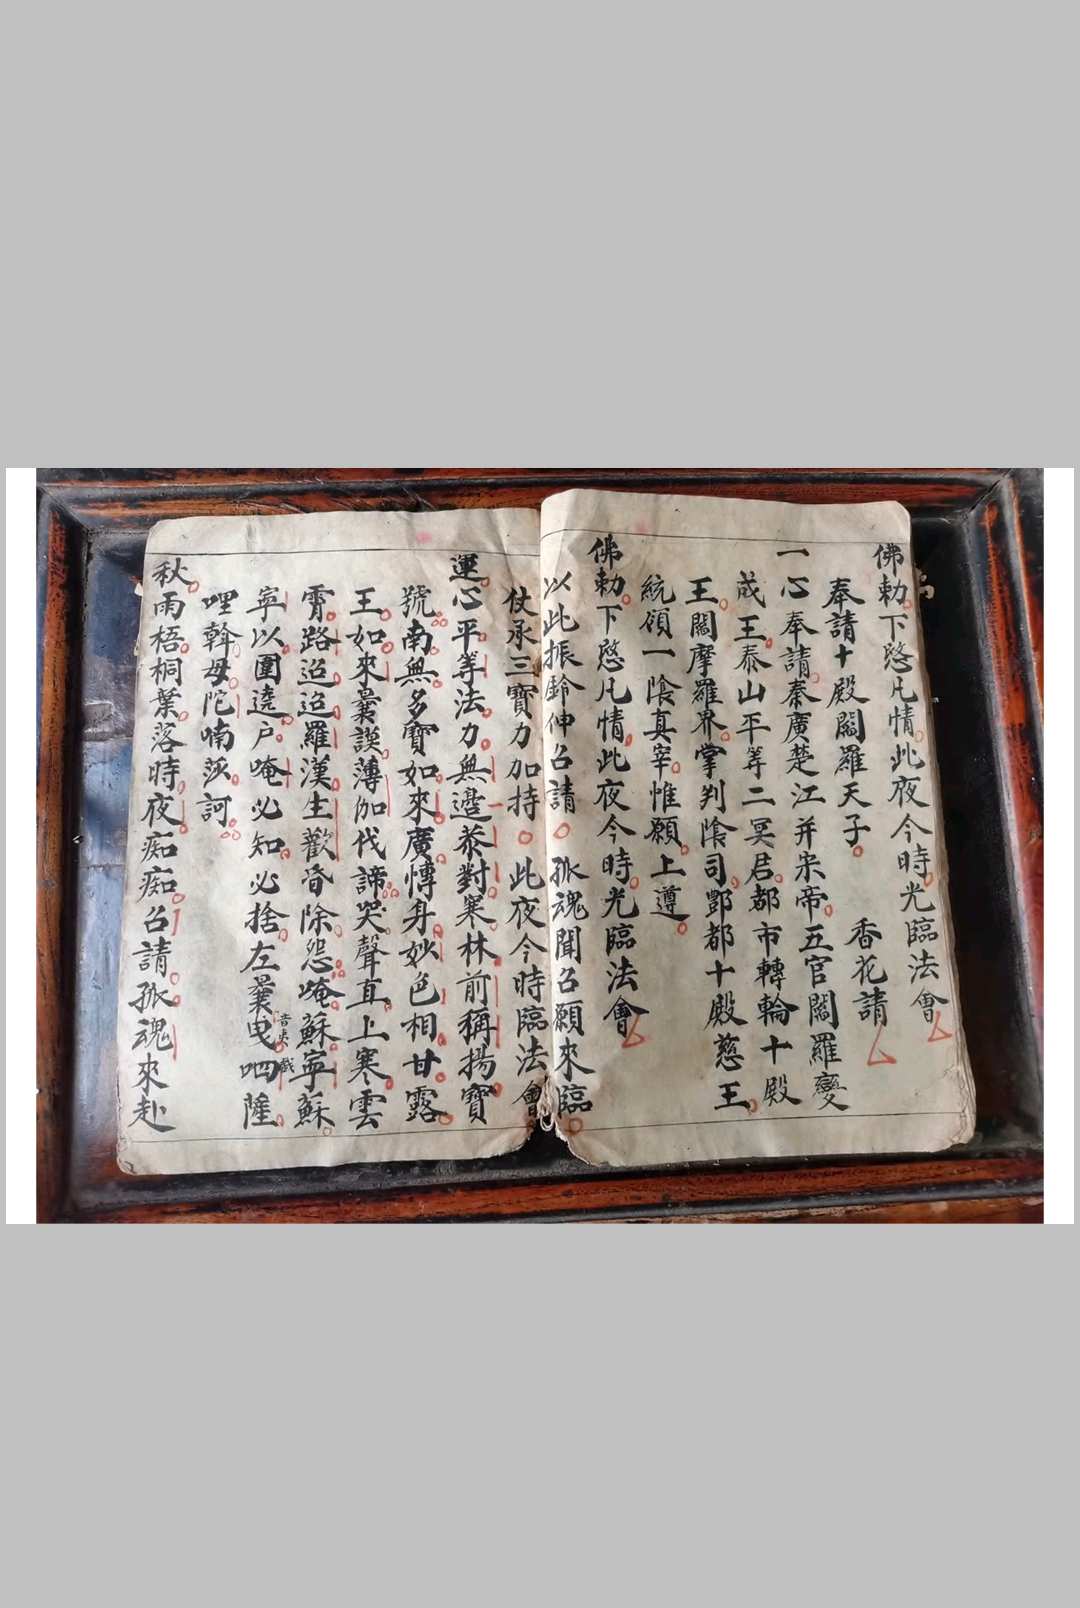 佛勅下愍凡情此夜今時光臨法會
奉請十殿閻羅天子 香花請
一心奉請秦廣楚江并宋帝五官閻羅變
成王泰山平等二冥君都市轉輪十殿
王閻摩羅界掌判陰司酆都十殿慈王
統領一陰真宰惟願上遵
佛勅下愍凡情此夜今時光臨法會
以此振鈴伸召請 孤魂聞召願來臨
仗承三寶力加持 此夜今時臨法會
運心平等法力無邊恭對寒林前稱揚寶
號南無多寶如來廣愽身妙色相甘露
王如來曩謨薄伽伐諦哭聲直上寒雲
霄路迢迢羅漢生歡昏除怨唵蘇寧蘇
寧以圍遶户唵必知必捨左曩曳吧薩
哩斡母陀喃莎訶
秋雨梧桐葉落時夜痴痴召請孤魂來赴